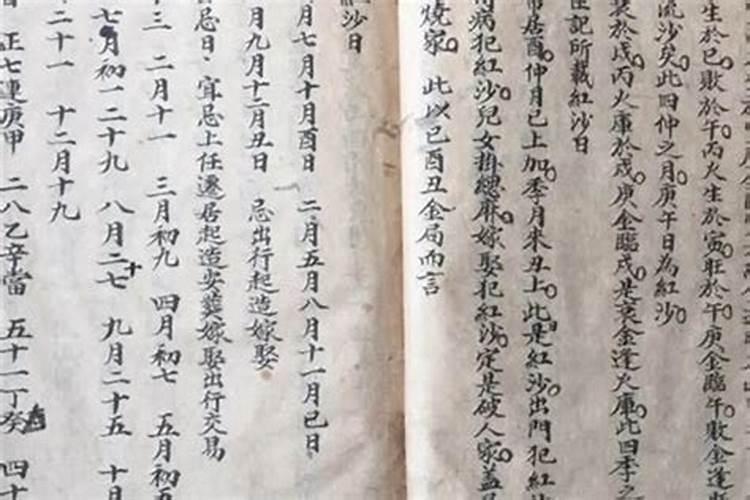 生於巳敗於午丙火生於寅旺於午庚金臨午敗金逢
流沙矣此四仲之月庚午日為紅沙
於戌丙火庫於戌庚金臨戌是衰金逢火庫此四季之
記所載紅沙日
居酉仲月巳上加季月來丑上此是紅沙出門犯紅
病犯紅沙兒女掛總麻嫁娶犯紅沙定是破人家蓋
燒家 此以巳酉丑金局而言
紅沙日
月七月十月酉日 二月五月八月十一月巳日
月九月十二月丑日 忌出行起造嫁娶
忌日 宜忌上任遷居起造安葬嫁娶出行交易
三 二月十一 三月初九 四月初七 五月初五
七月初一二十九 八月二十七 九月二十五 十月
二十一 十二月十九
正七連庚甲 二八乙辛當 五十一丁癸 四十